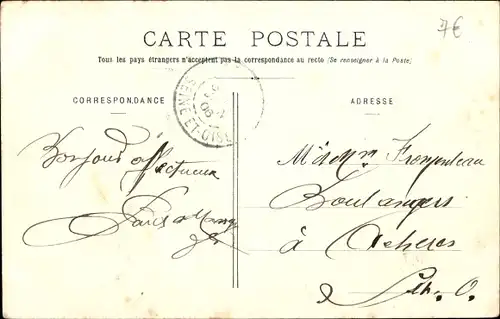 7€
CARTE POSTALE
Tous les pays étrangers n'acceptent pas la correspondance au recto (Se renseigner à la Poste)
SEINE-ET-OISE
CORRESPONDANCE
ADRESSE
Bonjour affectueux
Boulangers
à Acheres